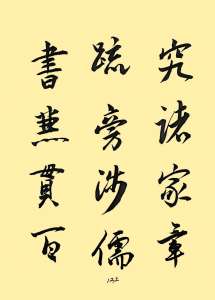 究諸家章
疏旁涉儒
書兼貫百